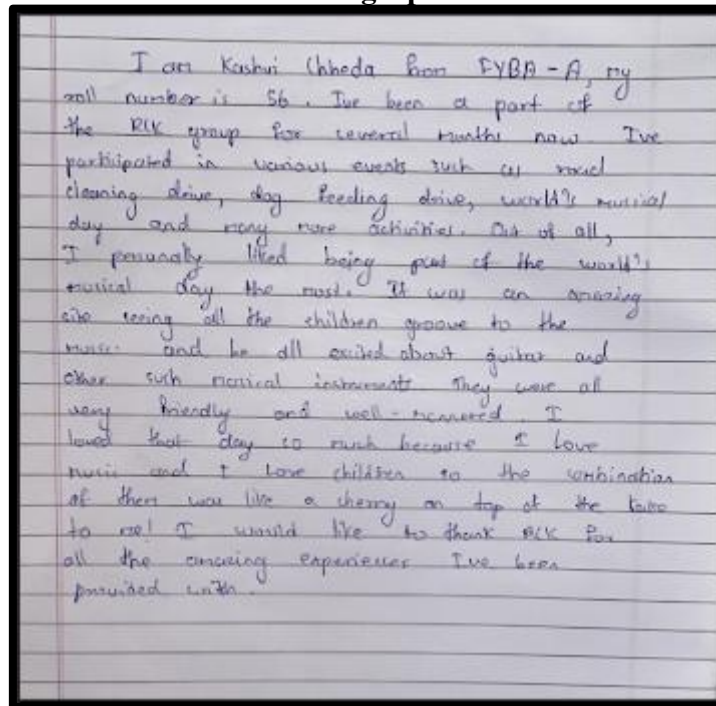 I am Kashvi Chheda from FYBA - A, my
roll number is 56. I've been a part of
the RCK group for several months now I've
participated in various events such as road
cleaning drive, dog feeding drive, world's musical
day and many more activities. Out of all,
I personally liked being part of the world's
musical day the most. It was an amazing
site seeing all the children groove to the
music and be all excited about guitar and
other such musical instruments They were all
very friendly and well-mannered. I
loved that day so much because I love
music and I love children so the combination
of them was like a cherry on top of the
to me! I would like to thank RCK for
all the amazing experiences I've been
provided with.